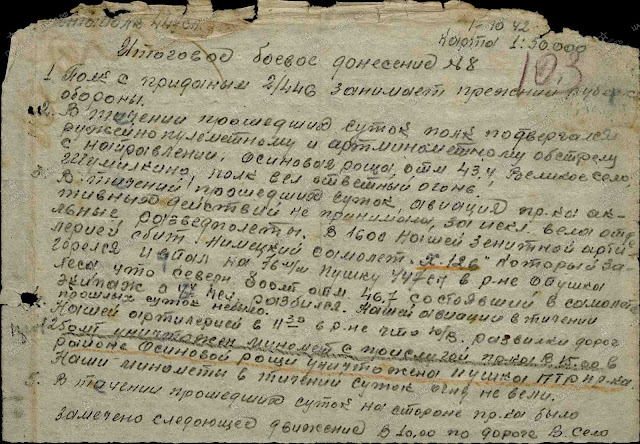 1-10 42
Карта 1:50.000
Итоговое боевое донесение №8
103
1. Полк с приданым 2/446 занимает прежний рубеж
обороны.
2. В течении прошедших суток полк подвергался
ружейно пулеметному и артминометному обстрелу
с направлении: Осиновая роща, отм 43,4, Великое село
Шумилкино, полк вел ответный огонь.
3. В течений прошедших суток, авиация пр-ка ак-
тивных действий не принимала, за искл.
льные разведполеты. В 1600 нашей зенитной арти-
лерией сбит немецкий самолет который за-
горелся и упал на 76 м/м пушку 447 сп в р-не опушка
леса что северн. 800м отм 46.7 состоявший в самолете
экипаж 4 чел. разбился. Нашей авиации в течении
прошлых суток небыло.
4. Нашей артилерией в 11 30 в р-не что ю/в. развилки дорог
200м уничтожен миномет с прислугой пр-ка В 15.00 в
районе Осиновой рощи уничтожена пушка ПТР пр-ка.
Наши минометы в течении суток огня не вели.
5. В течении прошедших суток на стороне пр-ка было
замечено следующее движение В 10,00 по дороге В. Село